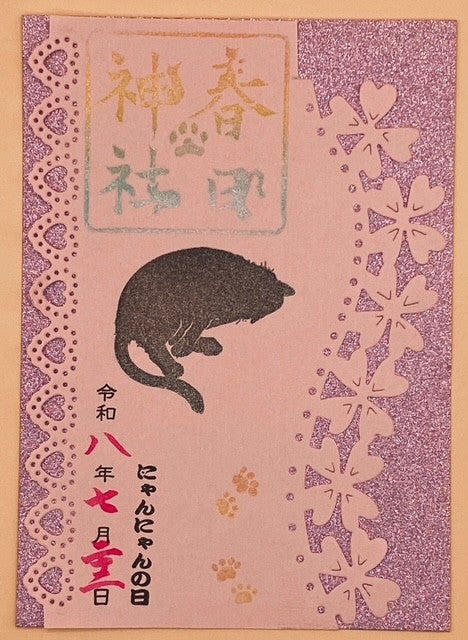 春日
神社
にゃんにゃんの日
令和八年七月二十二日